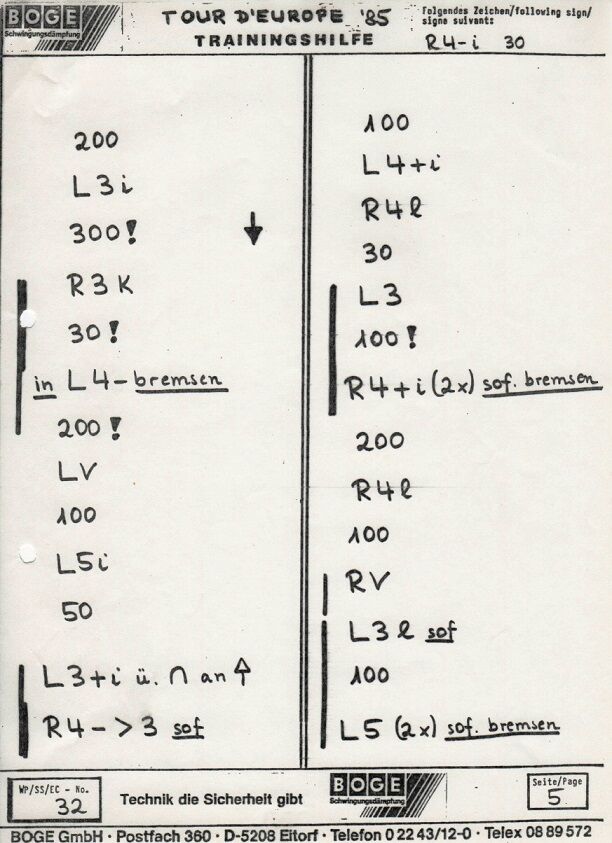 BOGE
Schwingungsdämpfung
TOUR D'EUROPE '85
TRAININGSHILFE
Folgendes Zeichen/following sign/
signe suivant:
R4-i 30
200
L3i
300!
R3K
30!
in L4-bremsen
200!
LV
100
L5i
50
L3+i ü. ∩ an
R4-> 3 sof
100
L4+i
R4l
30
L3
100!
R4+i (2x) sof. bremsen
200
R4l
100
RV
L3l sof
100
L5 (2x) sof. bremsen
WP/SS/EC - No.
32
Technik die Sicherheit gibt
BOGE
Schwingungsdämpfung
Seite/Page
5
BOGE GmbH · Postfach 360 · D-5208 Eitorf · Telefon 0 22 43/12-0 · Telex 08 89 572